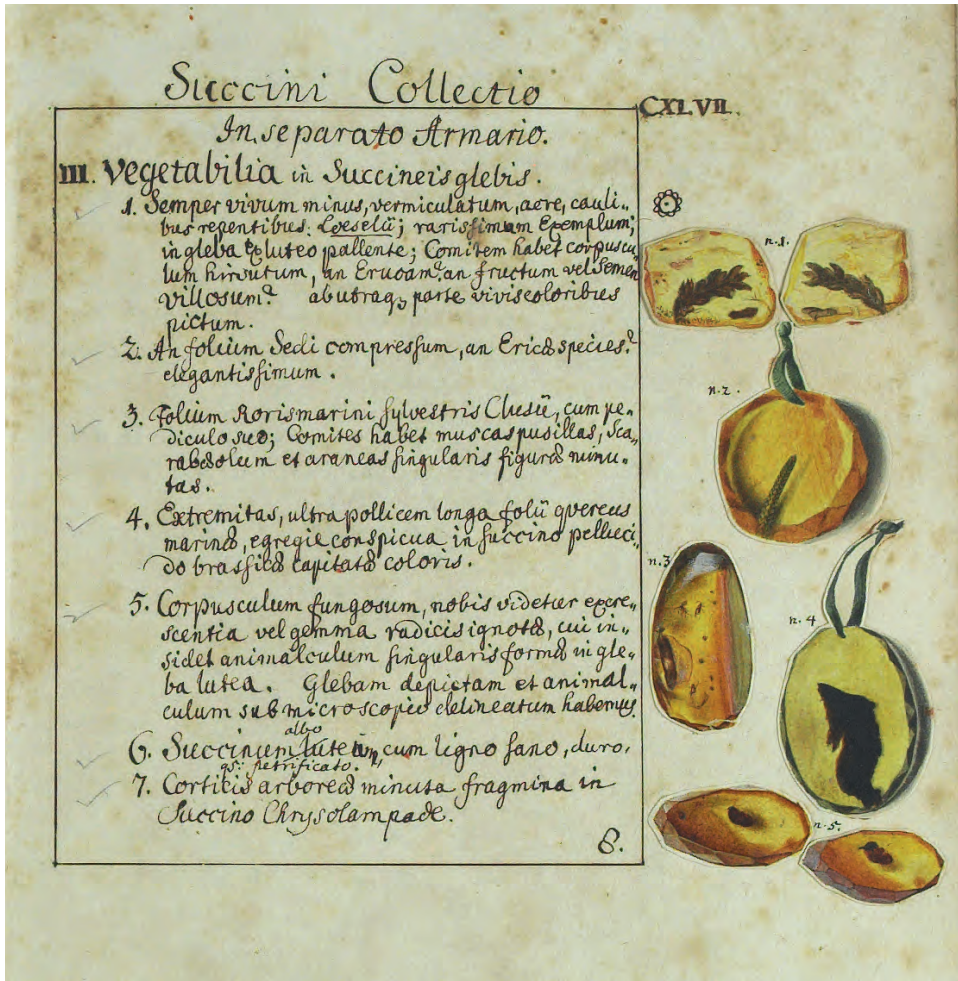 Succini Collectio
CXLVII.
In separato Armario.
III. Vegetabilia in Succineis glebis.
1. Semper vivum minus, vermiculatum, acre, cauli„
bus repentibus. Loeselii; rarissimum Exemplum;
in gleba ex luteo pallente; Comitem habet corpuscu„
lum hirsutum, an Erucam? an fructum vel Semen
villosum? ab utraq; parte vivis coloribus
pictum.
2. An folium Sedi compressum, an Ericæ species?
elegantissimum.
3. Folium Rorismarini sylvestris Clusii, cum pe„
diculo suo; Comites habet muscas pusillas, Sca„
rabæolum et araneas singularis figuræ minu„
tas.
4. Extremitas, ultra pollicem longa folii quercus
marinæ, egregie conspicua in succino pelluci„
do brassicæ capitatæ coloris.
5. Corpusculum fungosum, nobis videtur excre„
scentia vel gemma radicis ignotæ, cui in„
sidet animalculum singularis formæ in gle„
ba lutea. Glebam depictam et animal„
culum sub microscopio delineatum habemus.
albo
6. Succinum luteum, cum ligno sano, duro,
qs: petrificato.
7. Corticis arboreæ minuta fragmina in
Succino Chrysolampade.
8.
n. 1.
n. 2.
n. 3
n. 4
n. 5.